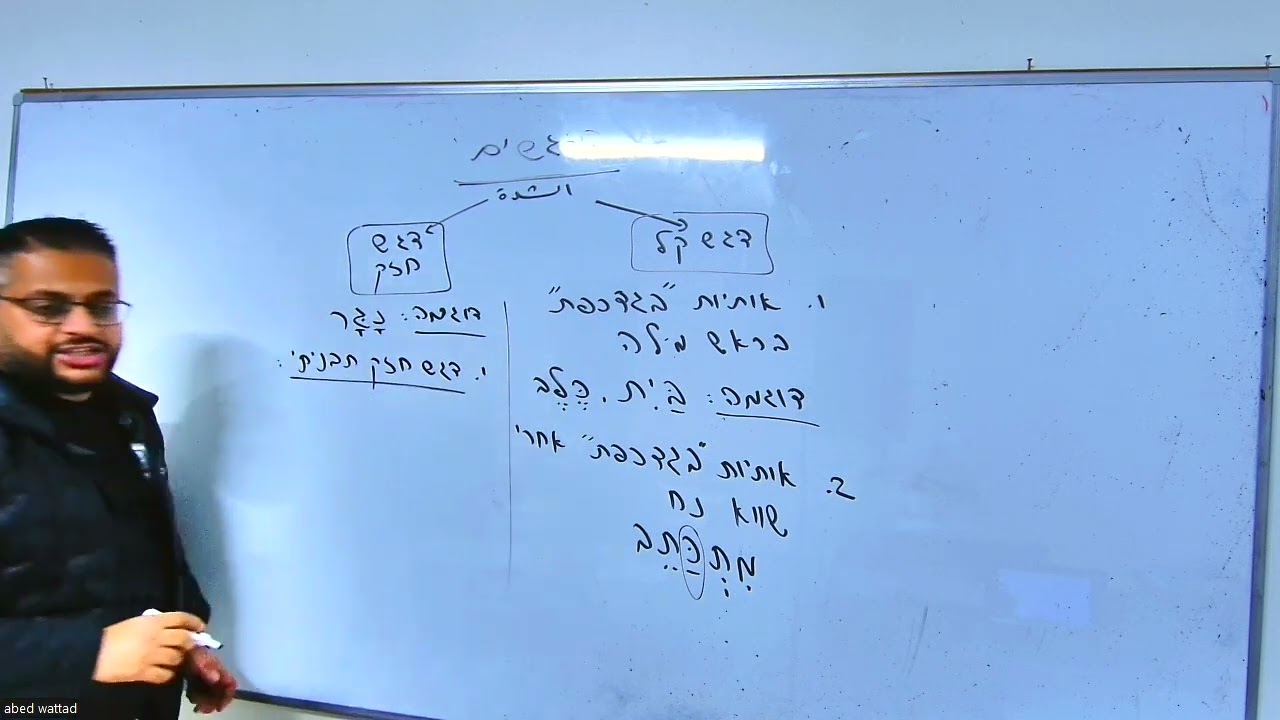 גשים
الشدة
דגש קל
1. אותיות "בגדכפת"
בראש מילה
דוגמה: בַּיִת, כֶּלֶב
2. אותיות "בגדכפת" אחרי
שווא נח
מִתְכַּתֵב
דגש
חזק
דוגמה: נַגָּר
1. דגש חזק תבניתי:
abed wattad